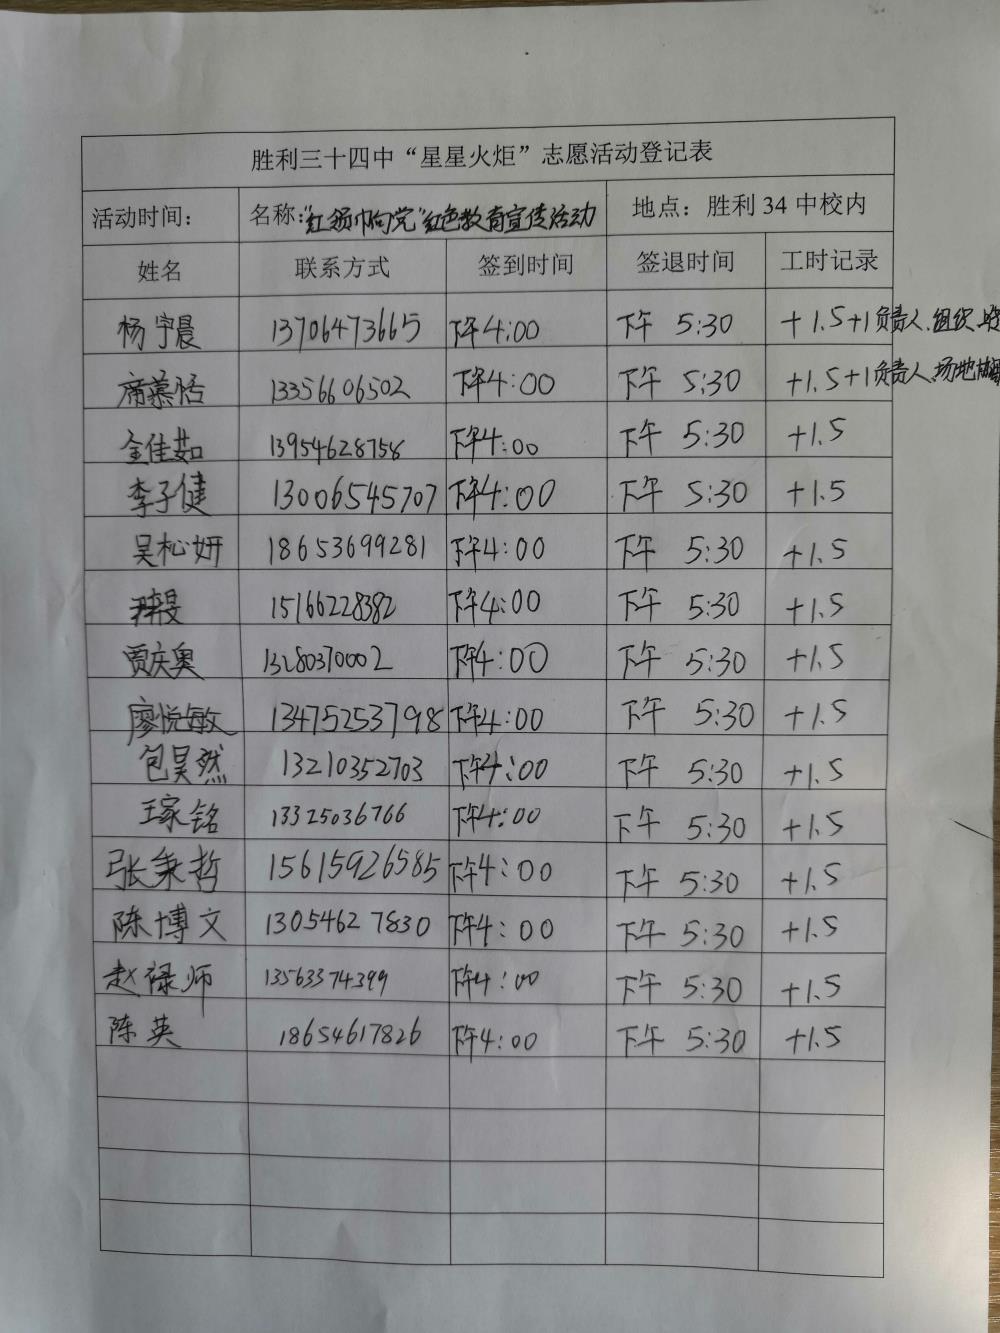 胜利三十四中“星星火炬”志愿活动登记表
活动时间： 名称：“红领巾向党”红色教育宣传活动 地点：胜利34中校内
姓名 联系方式 签到时间 签退时间 工时记录
杨宇晨 13706473665 下午4:00 下午 5:30 +1.5+1负责人、组织、
席慕恬 13356606502 下午4:00 下午 5:30 +1.5+1负责人、场地
金佳茹 13954628758 下午4:00 下午 5:30 +1.5
李子健 13006545707 下午4:00 下午 5:30 +1.5
吴松妍 18653699281 下午4:00 下午 5:30 +1.5
15166228382 下午4:00 下午 5:30 +1.5
贾庆奥 13280370002 下午4:00 下午 5:30 +1.5
廖悦敏 13475253798 下午4:00 下午 5:30 +1.5
包昊然 13210352703 下午4:00 下午 5:30 +1.5
王家铭 13325036766 下午4:00 下午 5:30 +1.5
张秉哲 15615926585 下午4:00 下午 5:30 +1.5
陈博文 13054627830 下午4:00 下午 5:30 +1.5
赵禄师 13563374399 下午4:00 下午 5:30 +1.5
陈英 18654617826 下午4:00 下午 5:30 +1.5